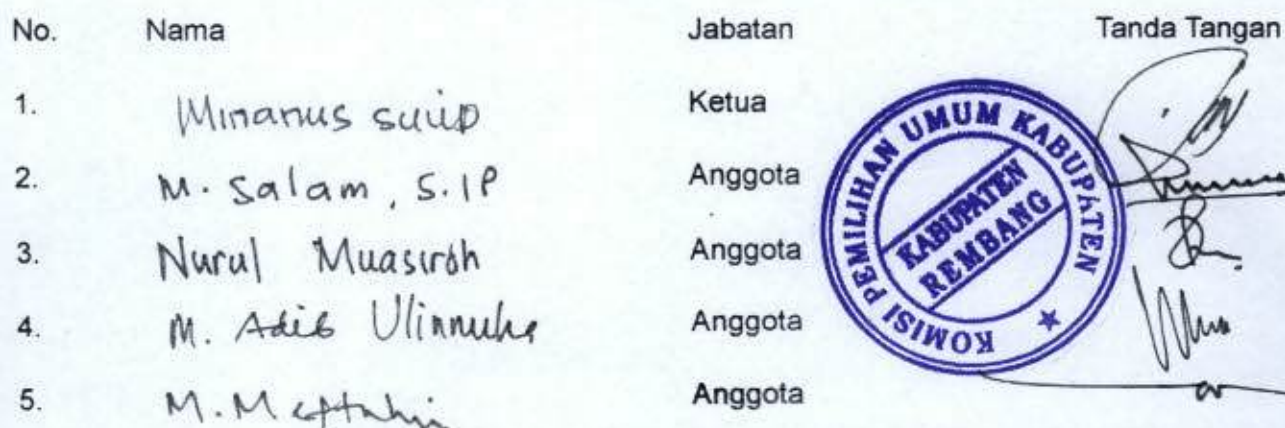 No. Nama Jabatan Tanda Tangan
1. Minanus suud Ketua
2. M. Salam, S.IP Anggota
3. Nurul Muasiroh Anggota
4. M. Adib Ulinnuha Anggota
5. M. Anggota
KOMISI PEMILIHAN UMUM KABUPATEN
KABUPATEN
REMBANG